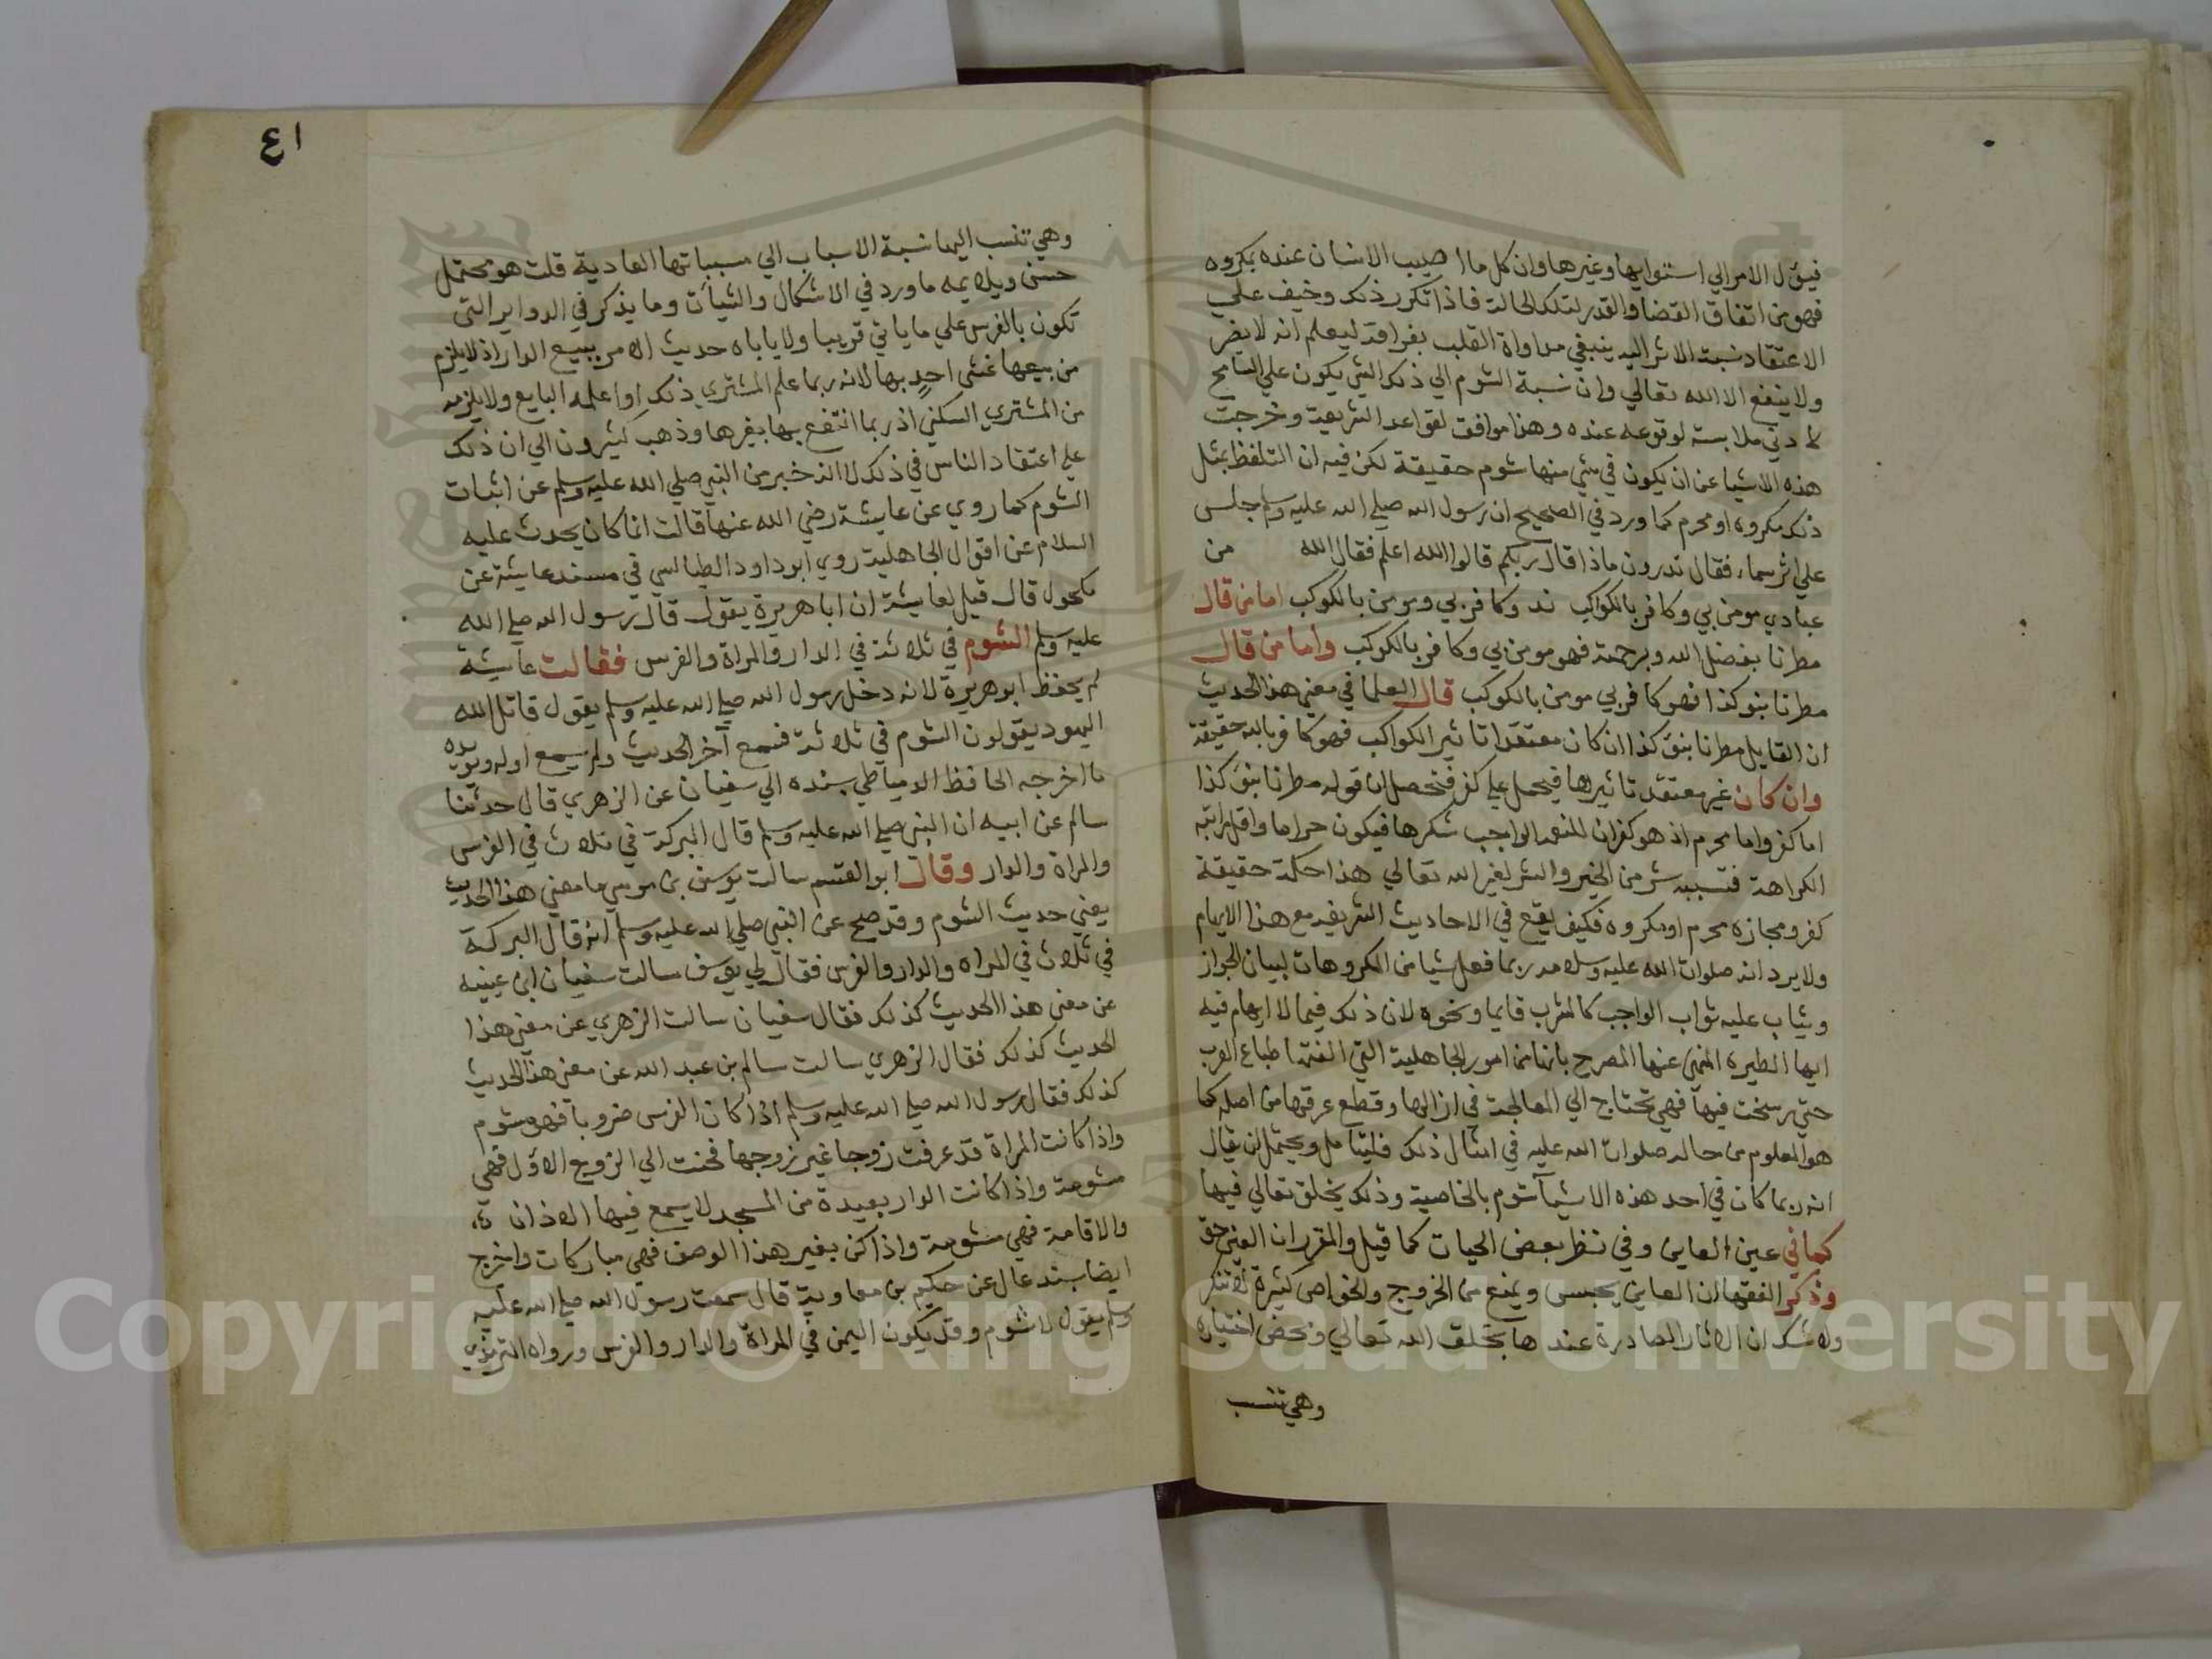 فيؤل الامر الي استوايها وغيرها وان كل ما اصيب الانسان عنده بمكروه
فهو من اتفاق القضا والقدر لتلك الحالة فاذا تكرر ذلك وخيف علي
الاعتقاد نسبة الاثر اليه ينبغي مداواة القلب بفراقه ليعلم انه لا يضر
ولا ينفع الا الله تعالي وان نسبة الشوم الي ذلك الشي يكون علي التسامح
لادني ملابسة لوقوعه عنده وهذا موافق لقواعد الشريعة وخرجت
هذه الاشيا عن ان يكون في شي منها شوم حقيقة لكن فيه ان التلفظ بمثل
ذلك مكروه او محرم كما ورد في الصحيح ان رسول الله صلي الله عليه وسلم جلس
علي اثر سماء فقال تدرون ماذا قال ربكم قالوا الله اعلم فقال الله من
عبادي مومن بي وكافر بالكواكب ند وكافر بي ومومن بالكوكب اما من قال
مطرنا بفضل الله وبرحمته فهو مومن بي وكافر بالكوكب واما من قال
مطرنا بنو كذا فهو كافر بي مومن بالكوكب قال العلما في معني هذا الحديث
ان القايل مطرنا بنو كذا ان كان معتقدا تاثير الكواكب فهو كافر بالله حقيقة
وان كان غير معتقد تاثيرها فيحمل علي كفر فتحصل ان قوله مطرنا بنو كذا
اما كفر واما محرم اذ هو كفران للنعمة الواجب شكرها فيكون حراما واقل مراتبه
الكراهة فنسبة شي من الخير والشر لغير الله تعالي هذا حكمه حقيقة
كفر ومجازه محرم او مكروه فكيف يقع في الاحاديث الشريفة مع هذا الايهام
ولا يرد انه صلوات الله عليه وسلامه ربما فعل شيا من المكروهات لبيان الجواز
ويثاب عليه ثواب الواجب كالشرب قايما ونحوه لان ذلك فيما لا ايهام فيه
ايها الطيرة المنهي عنها المصرح بانها من امور الجاهلية التي الفتها طباع العرب
حتي رسخت فيها فهي تحتاج الي المعالجة في ازالتها وقطع عرقها من اصله كما
هو المعلوم من حاله صلوات الله عليه في امثال ذلك فليتامل ويحتمل ان يقال
انه ربما كان في احد هذه الاشيآ شوم بالخاصية وذلك يخلق تعالي فيها
كما في عين العاين وفي نظر بعض الحيات كما قيل والمقرر ان العين حق
وذكر الفقها ان العاين يحبس ويمنع من الخروج والخواص كثيرة لا تنكر
ولا شك ان الاثار الصادرة عندها بخلق الله تعالي ومحض اختياره
وهي تنسب
٤١
وهي تنسب اليها نسبة الاسباب الي مسبباتها العادية قلت هو محتمل
حسن ويلايمه ما ورد في الاشكال والشيآت وما يذكر في الدواير التي
تكون بالفرس علي ما ياتي قريبا ولا ياباه حديث الامر ببيع الدار اذ لا يلزم
من بيعها غش احد بها لانه ربما علم المشتري ذلك او اعلمه البايع ولا يلزم
من المشتري السكني اذ ربما انتفع بها بغيرها وذهب كثيرون الي ان ذلك
علي اعتقاد الناس في ذلك لا انه خبر من النبي صلي الله عليه وسلم عن اثبات
الشوم كما روي عن عايشة رضي الله عنها قالت انما كان يحدث عليه
السلام عن اقوال الجاهلية روي ابو داود الطيالسي في مسند عايشة عن
مكحول قال قيل لعايشة ان ابا هريرة يقول قال رسول الله صلي الله
عليه وسلم الشوم في ثلاثة في الدار والمراة والفرس فقالت عايشة
لم يحفظ ابو هريرة لانه دخل رسول الله صلي الله عليه وسلم يقول قاتل الله
اليهود يقولون الشوم في ثلاثة فسمع آخر الحديث ولم يسمع اوله ويويده
ما اخرجه الحافظ الدمياطي بسنده الي سفيان عن الزهري قال حدثنا
سالم عن ابيه ان النبي صلي الله عليه وسلم قال البركة في ثلاث في الفرس
والمراة والدار وقال ابو القسم سالت يوسف بن موسي ما معني هذا الحديث
يعني حديث الشوم وقد صح عن النبي صلي الله عليه وسلم انه قال البركة
في ثلاث في المراه والدار والفرس فقال لي يوسف سالت سفيان ابن عيينه
عن معني هذا الحديث كذلك فقال سفيان سالت الزهري عن معني هذا
الحديث كذلك فقال الزهري سالت سالم بن عبد الله عن معني هذا الحديث
كذلك فقال رسول الله صلي الله عليه وسلم اذا كان الفرس ضروبا فهو مشوم
واذا كانت المراة قد عرفت زوجا غير زوجها فحنت الي الزوج الاول فهي
مشومة واذا كانت الدار بعيدة من المسجد لا يسمع فيها الاذان
والاقامة فهي مشومة واذا كن بغير هذا الوصف فهي مباركات واخرج
ايضا بسند عال عن حكيم بن معاوية قال سمعت رسول الله صلي الله عليه
وسلم يقول لا شوم وقد يكون اليمن في المراة والدار والفرس ورواه الترمذي
Copyright © King Saud University